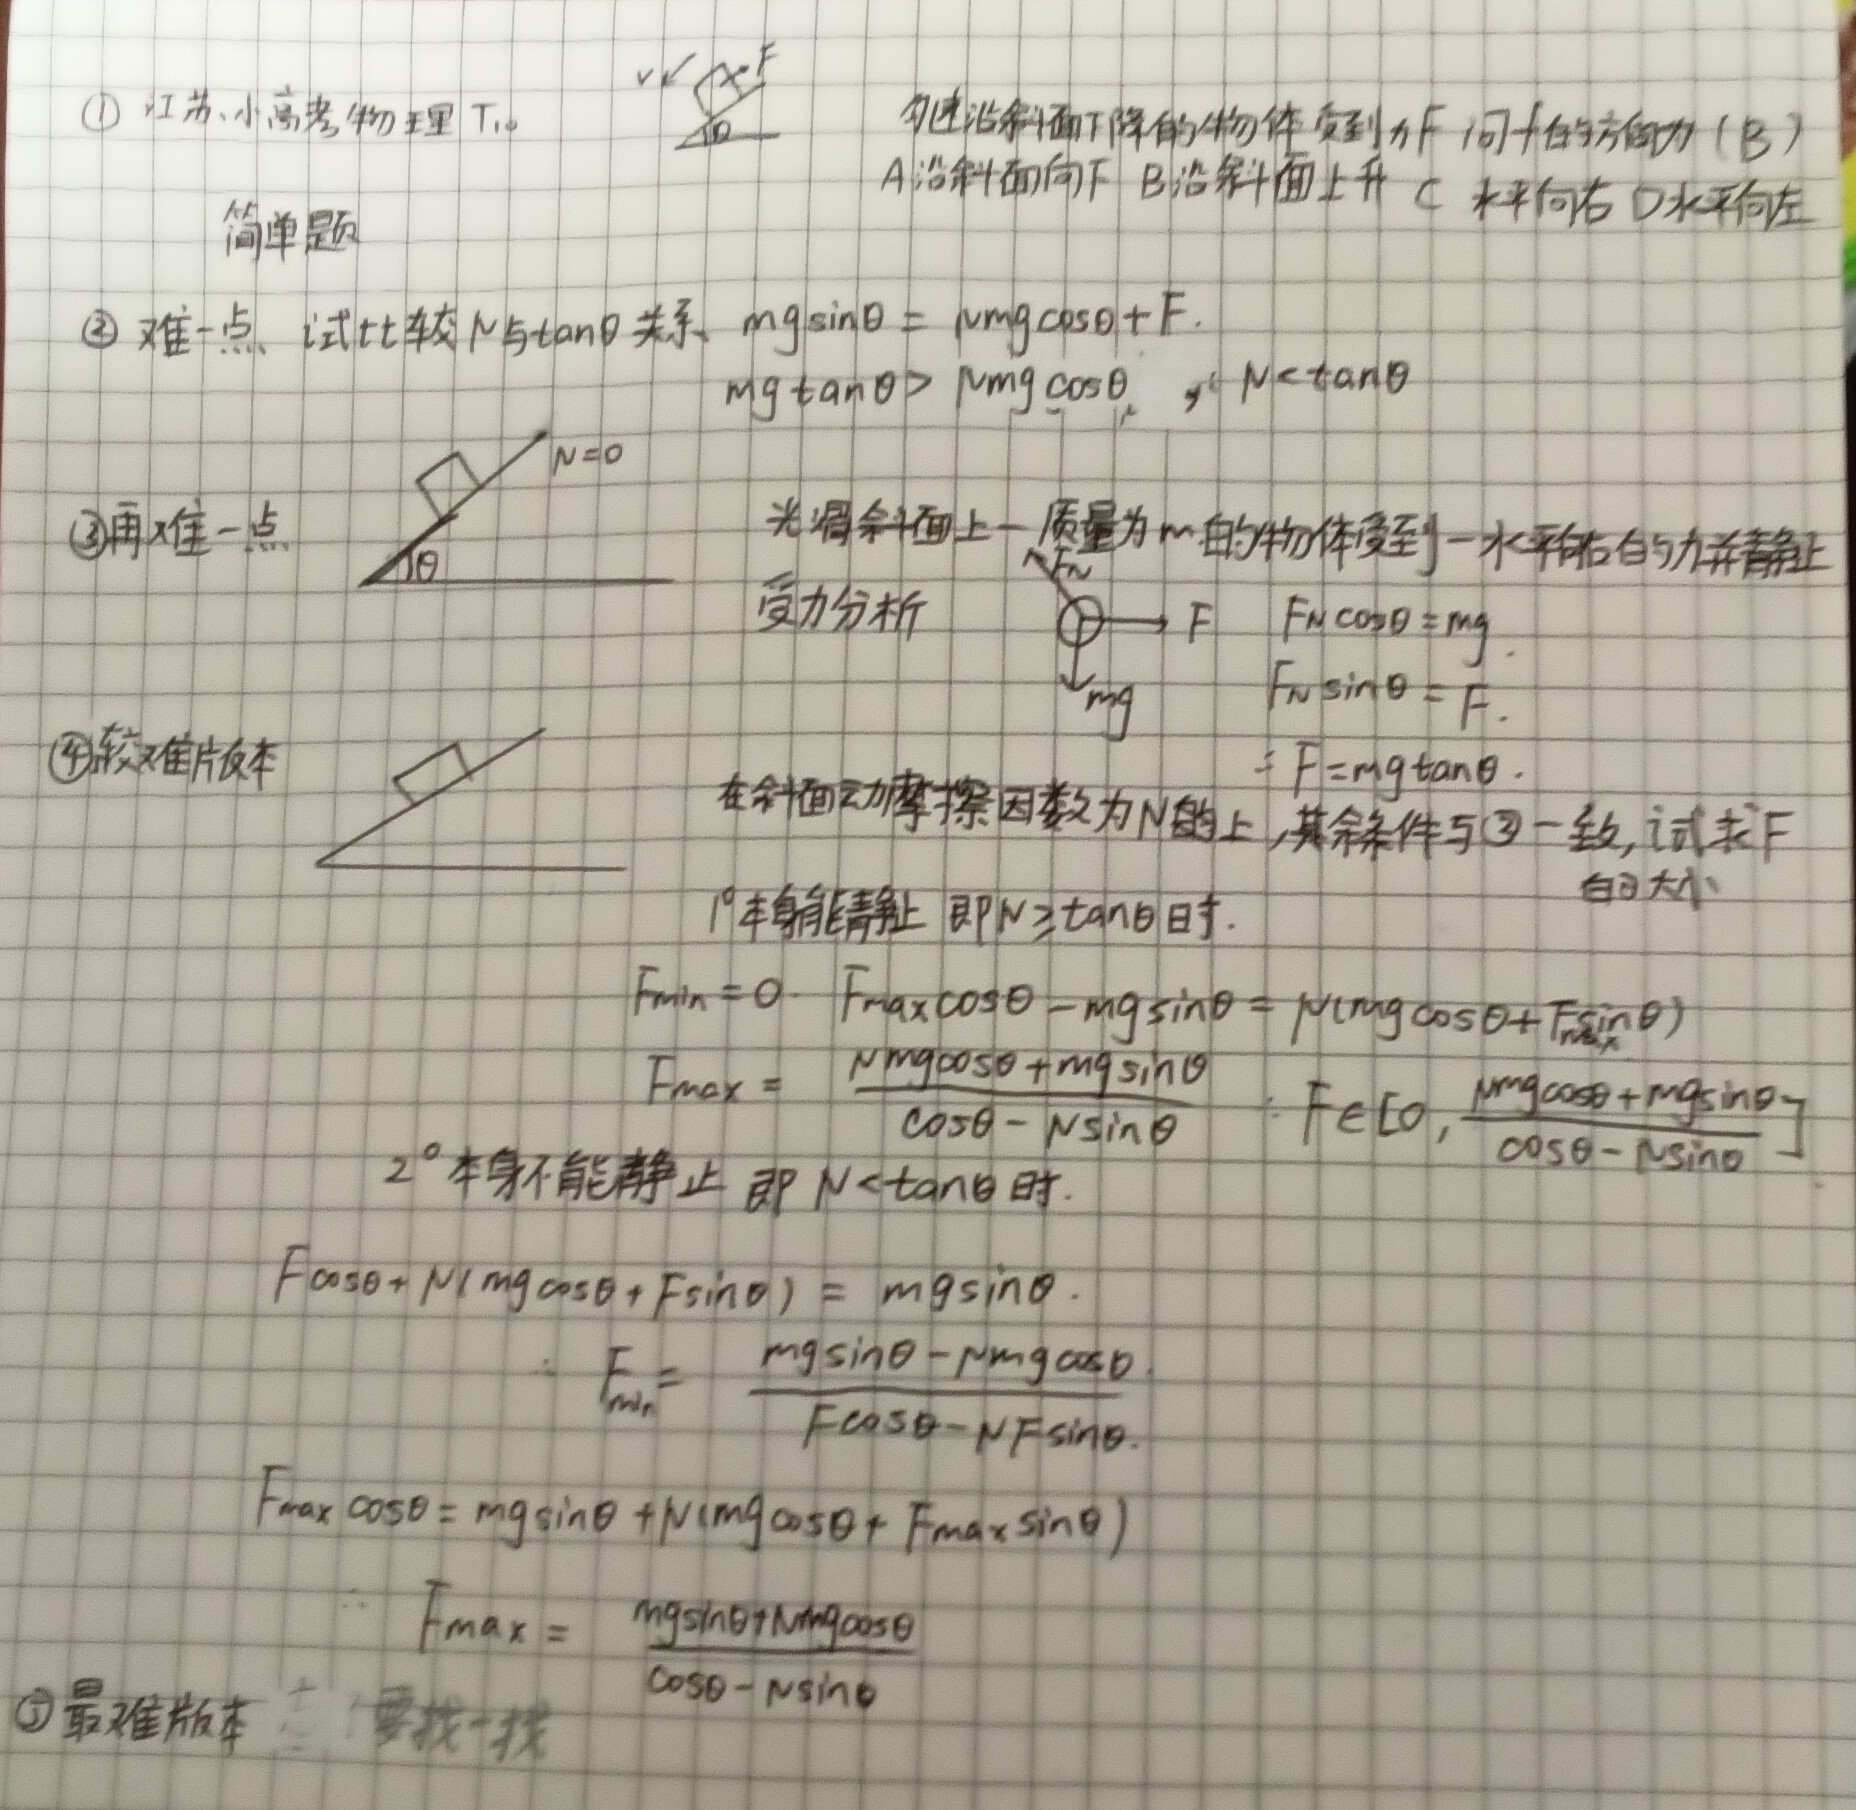 ① 江苏小高考物理 T10
v F
θ
匀速沿斜面下降的物体受到力F 问f的方向为（B）
A沿斜面向下 B沿斜面上升 C 水平向右 D水平向左
简单题
② 难一点 试比较μ与tanθ关系 mgsinθ = μmgcosθ+F.
mgtanθ > μmgcosθ ∴ μ<tanθ
μ=0
θ
③再难一点 光滑斜面上一质量为m的物体受到一水平向右的力并静止
受力分析 FN F mg FNcosθ=mg.
FNsinθ=F.
∴F=mgtanθ.
④较难版本
在斜面动摩擦因数为μ的上,其余条件与③一致,试求F
的大小
1°本身能静止 即μ≥tanθ时.
Fmin=0. Fmaxcosθ-mgsinθ=μ(mgcosθ+Fmaxsinθ)
Fmax= μmgcosθ+mgsinθ / cosθ-μsinθ ∴F∈[0, μmgcosθ+mgsinθ / cosθ-μsinθ]
2°本身不能静止 即 μ<tanθ时.
Fcosθ+μ(mgcosθ+Fsinθ) = mgsinθ.
∴ Fmin= mgsinθ-μmgcosθ. / Fcosθ-μFsinθ.
Fmaxcosθ=mgsinθ+μ(mgcosθ+Fmaxsinθ)
∴ Fmax= mgsinθ+μmgcosθ / cosθ-μsinθ
⑤最难版本 要找一找